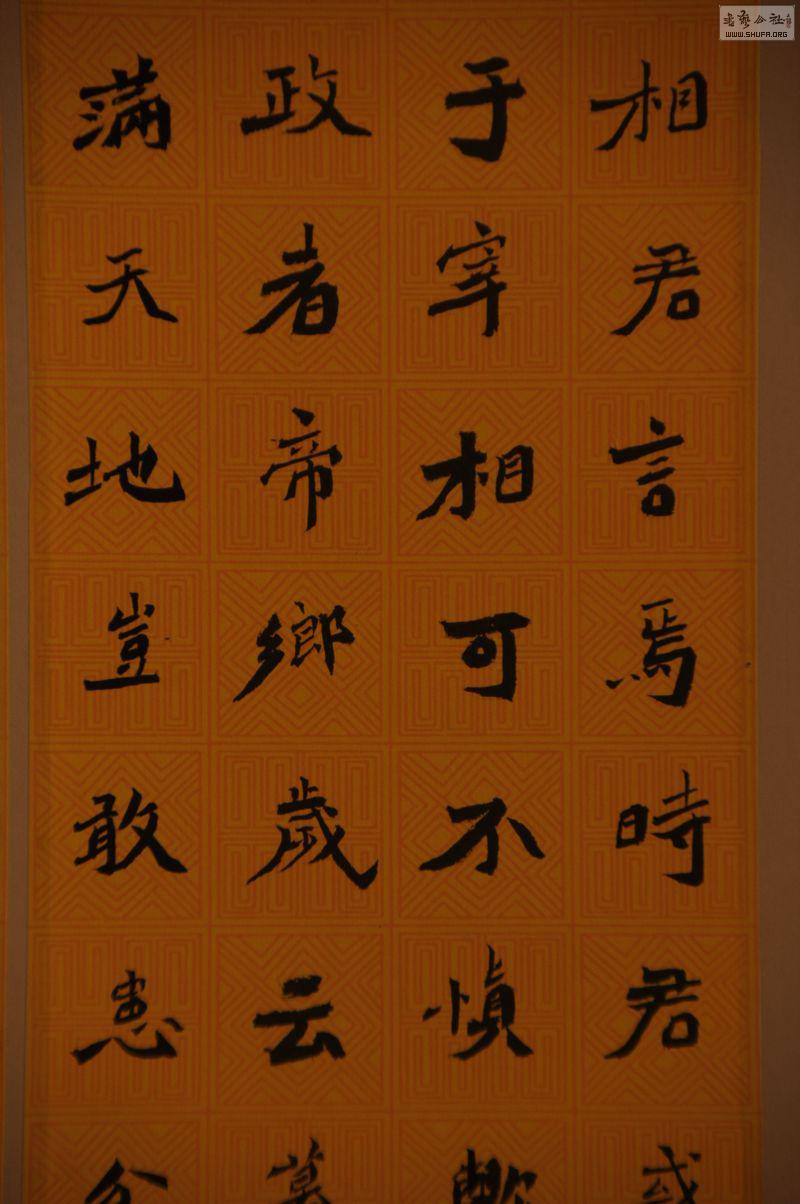 相君言焉時君
于宰相可不慎歟
政者帝鄉歲云莫
滿天地豈敢
書藝公社
WWW.SHUFA.ORG